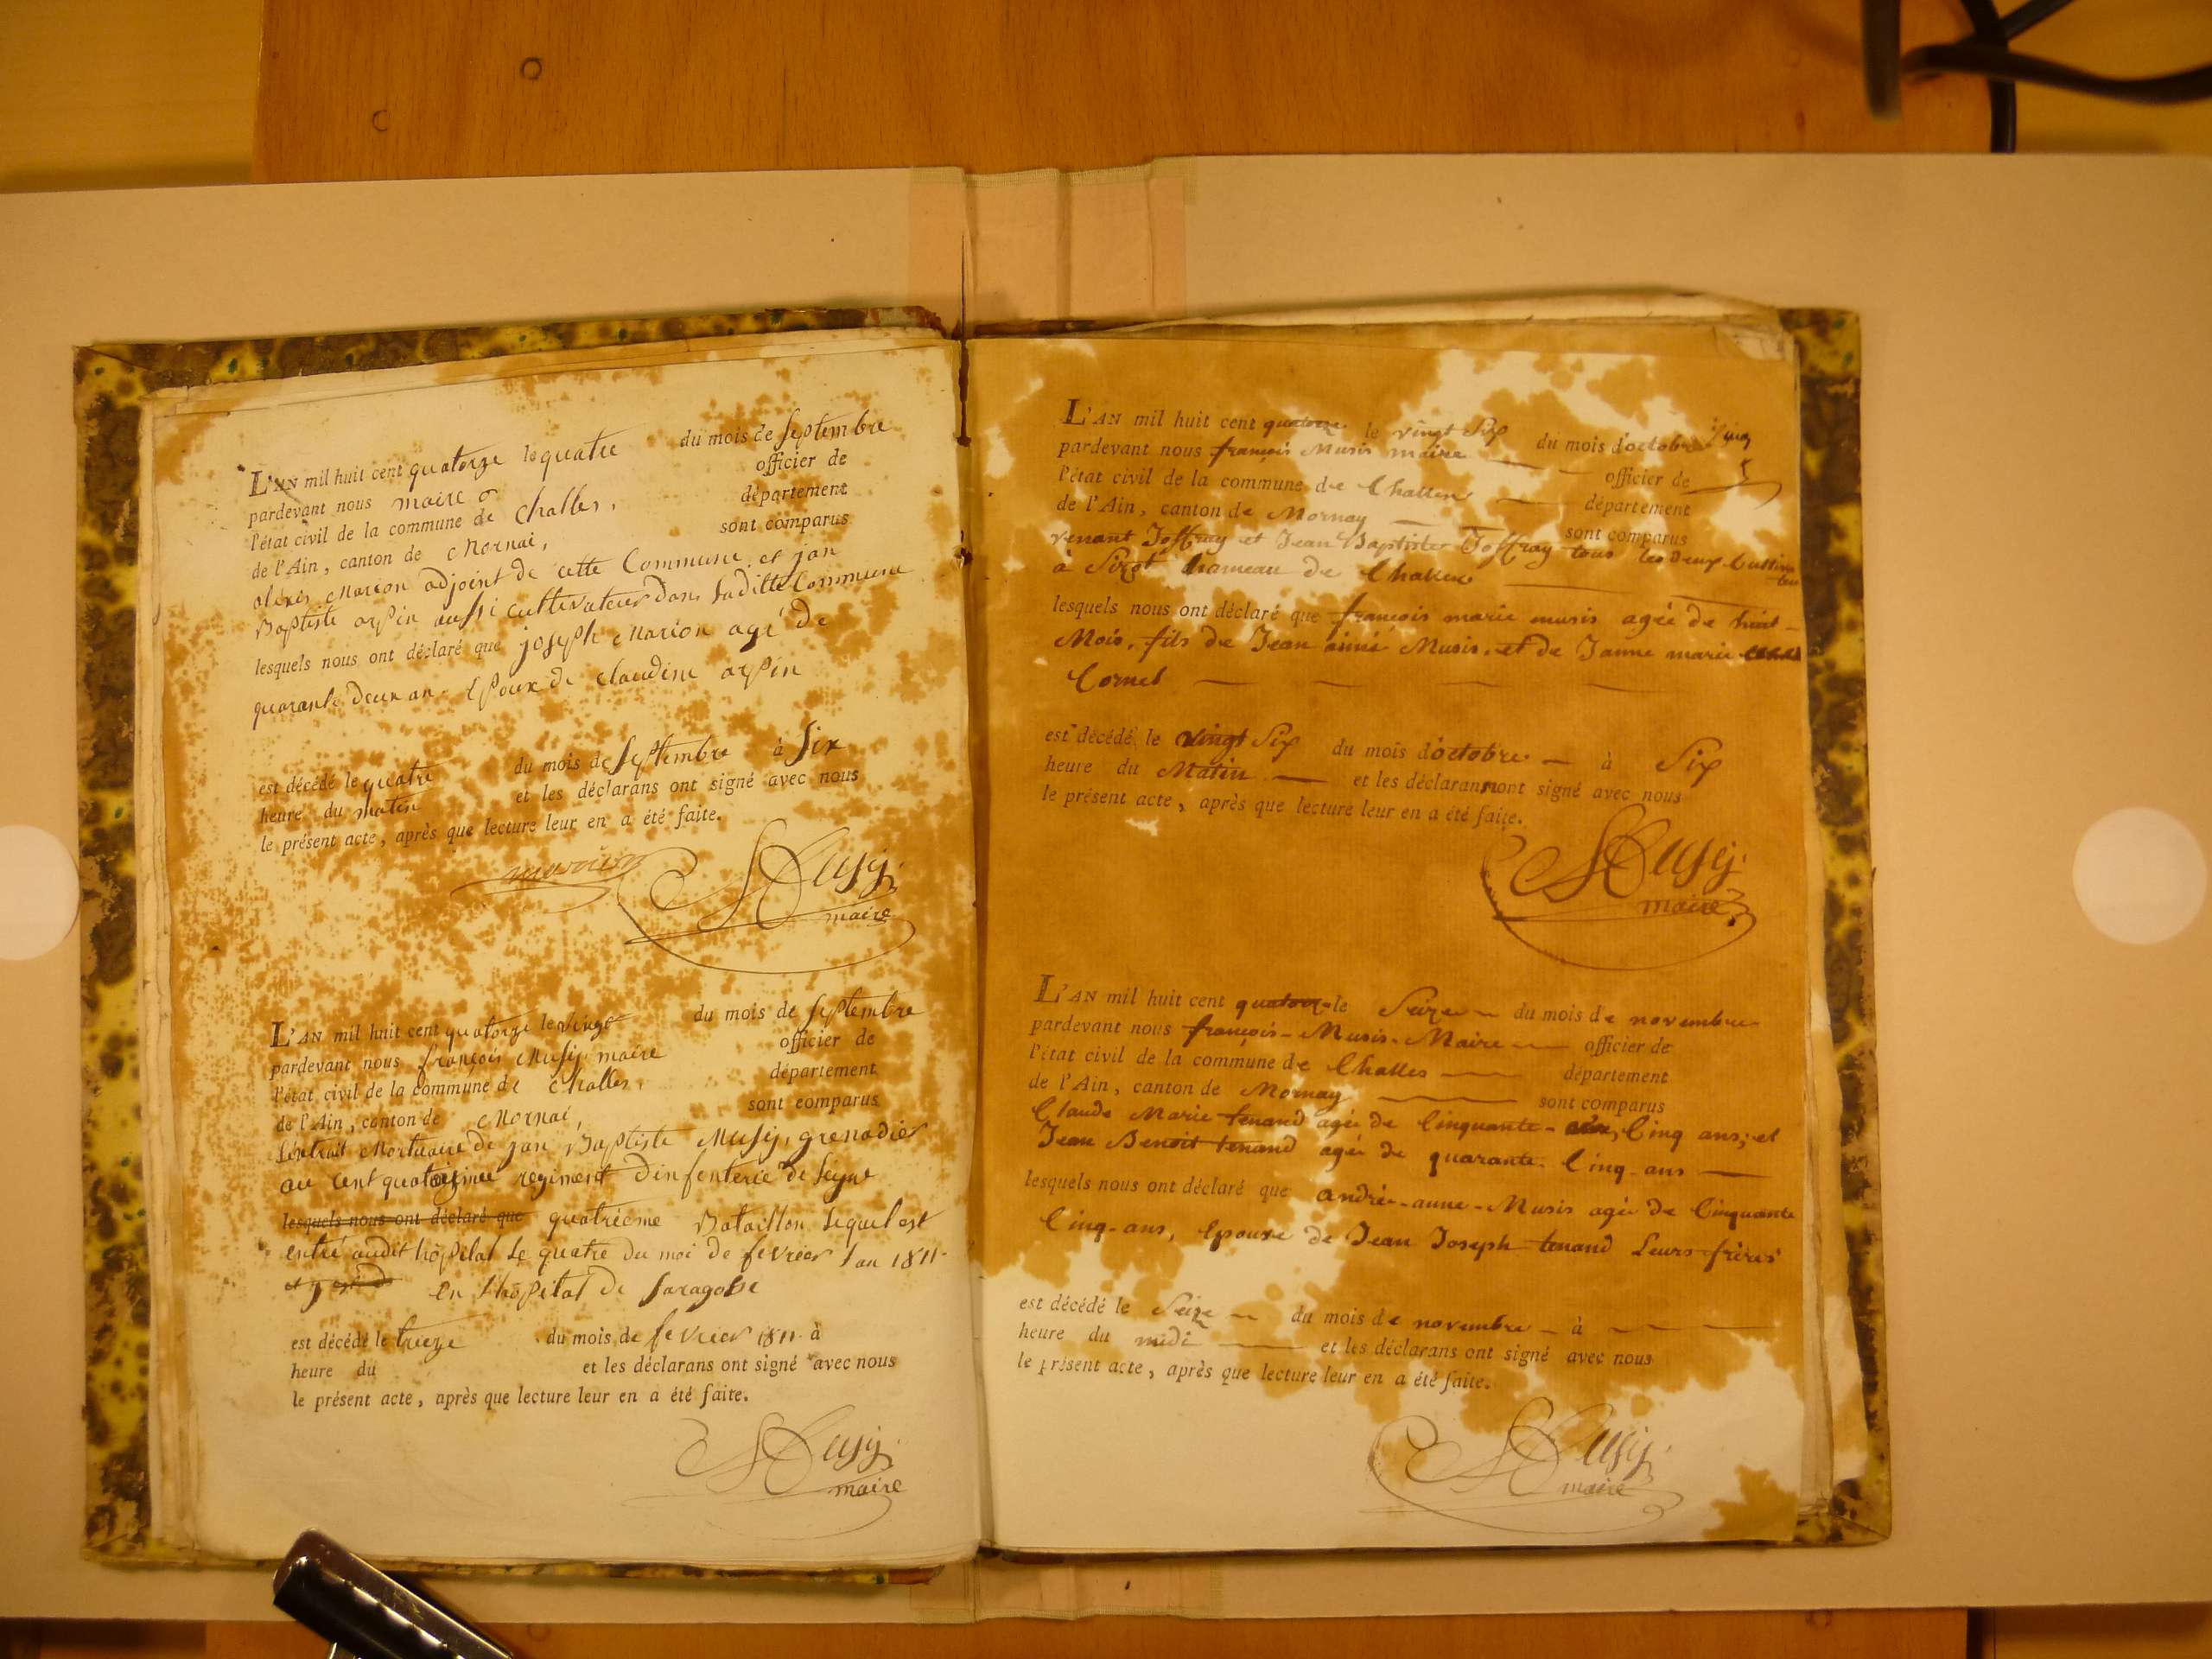 L'AN mil huit cent quatorze le quatre du mois de septembre
pardevant nous maire officier de
l'état civil de la commune de Challes, département
de l'Ain, canton de Mornai, sont comparus
alexis Marion adjoint de cette Commune et jan
Baptiste arpin aussi cultivateur dans laditte Commune
lesquels nous ont déclaré que joseph Marion agé de
quarante deux an Epoux de claudine arpin
est décédé le quatre du mois de septembre à six
heure du matin et les déclarans ont signé avec nous
le présent acte, après que lecture leur en a été faite.
marion Musy
maire
L'AN mil huit cent quatorze le vingt du mois de septembre
pardevant nous françois Musy maire officier de
l'état civil de la commune de Challes, département
de l'Ain, canton de Mornai, sont comparus
L'extrait Mortuaire de jan Baptiste Musy, grenadier
au Cent quatorzime regiment d'infenterie de Legne
lesquels nous ont déclaré que quatriéme Bataillon Lequel est
entré audit hôpital le quatre du moi de fevrier l'an 1811
et y est en l'hôpital de Saragosse
est décédé le treize du mois de fevrier 1811 à
heure du et les déclarans ont signé avec nous
le présent acte, après que lecture leur en a été faite.
Musy
maire
L'AN mil huit cent quatorze le vingt Six du mois d'octobre
pardevant nous françois Musis maire officier de
l'état civil de la commune de Challes département
de l'Ain, canton de Mornay sont comparus
venant Joffray et Jean Baptiste Joffray tous les deux
à hameau de Challes
lesquels nous ont déclaré que françois marie musis agée de huit
Mois, fils de Jean aimé Musis, et de Janne marie
Cornet
est décédé le vingt Six du mois d'octobre à Six
heure du Matin et les déclarans ont signé avec nous
le présent acte, après que lecture leur en a été faite.
Musy
maire
L'AN mil huit cent quatorze le Seize du mois de novembre
pardevant nous françois Musis Maire officier de
l'état civil de la commune de Challes département
de l'Ain, canton de Mornay sont comparus
Claude Marie tenand agée de Cinquante Cinq ans, et
Jean Benoit tenand agée de quarante Cinq ans
lesquels nous ont déclaré que andrée-anne-Musis agée de Cinquante
Cinq-ans, Epouse de Jean Joseph tenand Leurs frères
est décédé le Seize du mois de novembre à
heure du midi et les déclarans ont signé avec nous
le présent acte, après que lecture leur en a été faite.
Musy
maire